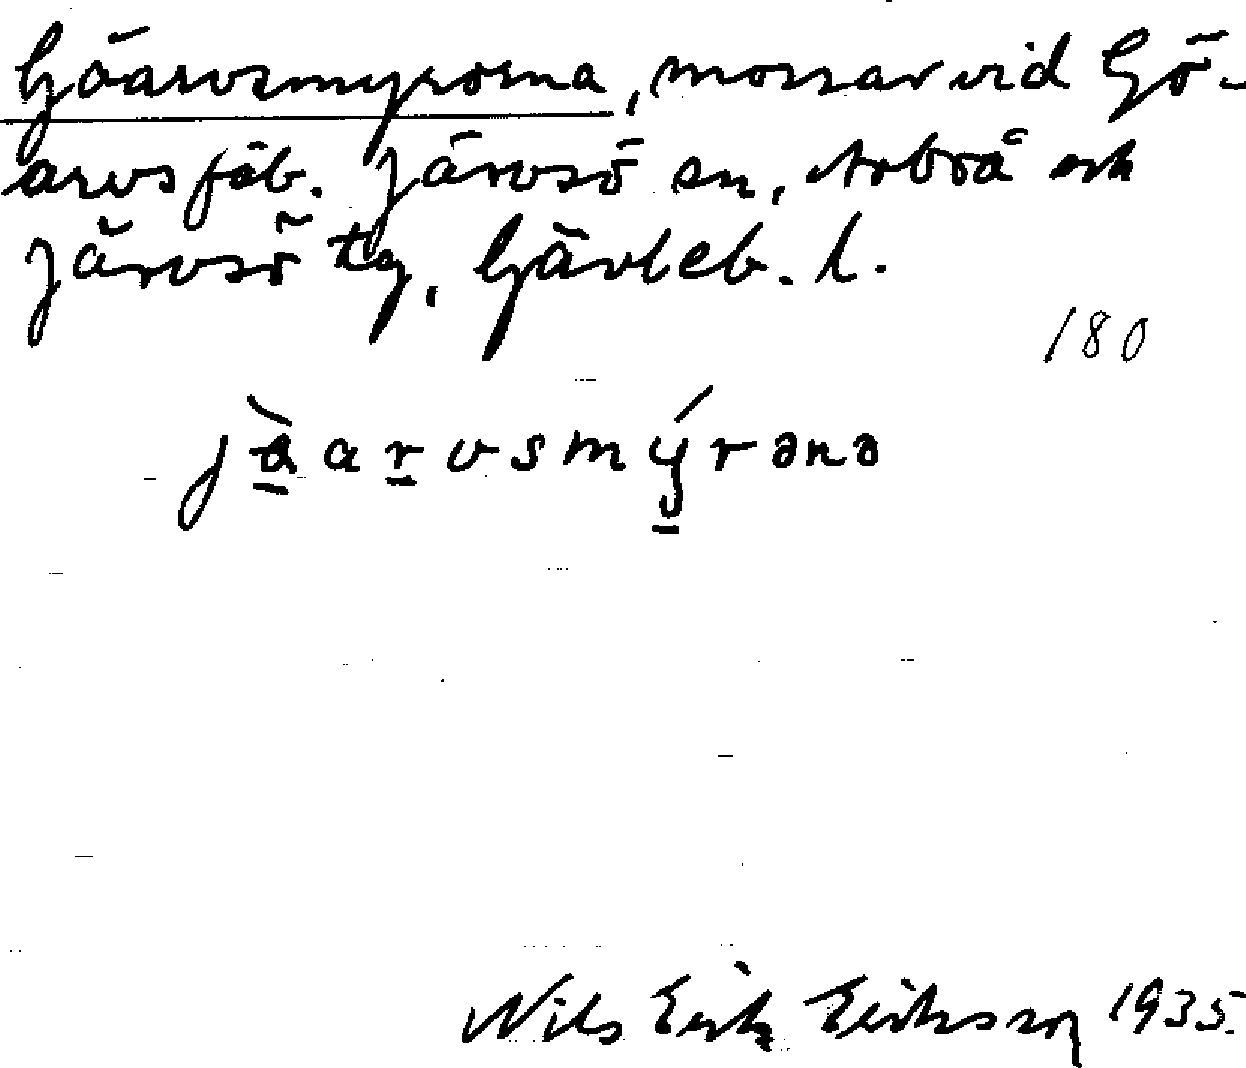 Göarvsmyrorna, mossar vid Gö-
arvs fäb. Järvsö sn, Arbrå och
Järvsö tg, Gävleb. l.
180
jö̀arvsmýrənə
Nils Erik Eriksson 1935.